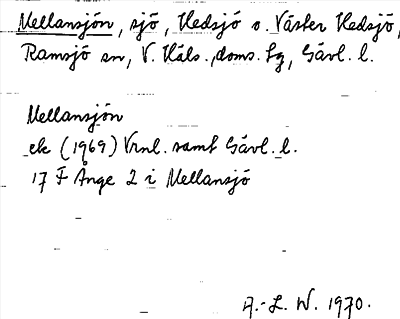 Mellansjön, sjö, Hedsjö o. Väster Hedsjö,
Ramsjö sn, V. Häls. doms. tg, Gävl. l.
Mellansjön
ek (1969) Vrnl. samt Gävl. l.
17 F Ånge 2 i Mellansjö
A.-L. W. 1970.